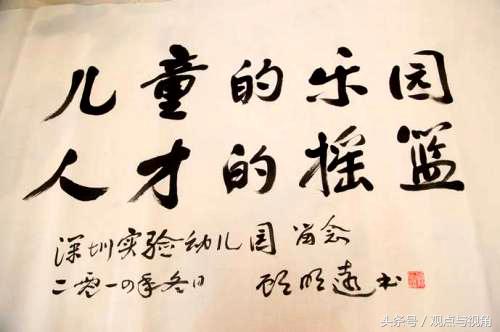 儿童的乐园
人才的摇篮
深圳实验幼儿园 留念
二零一四年冬日 顾明远书
头条号 / 观点与视角